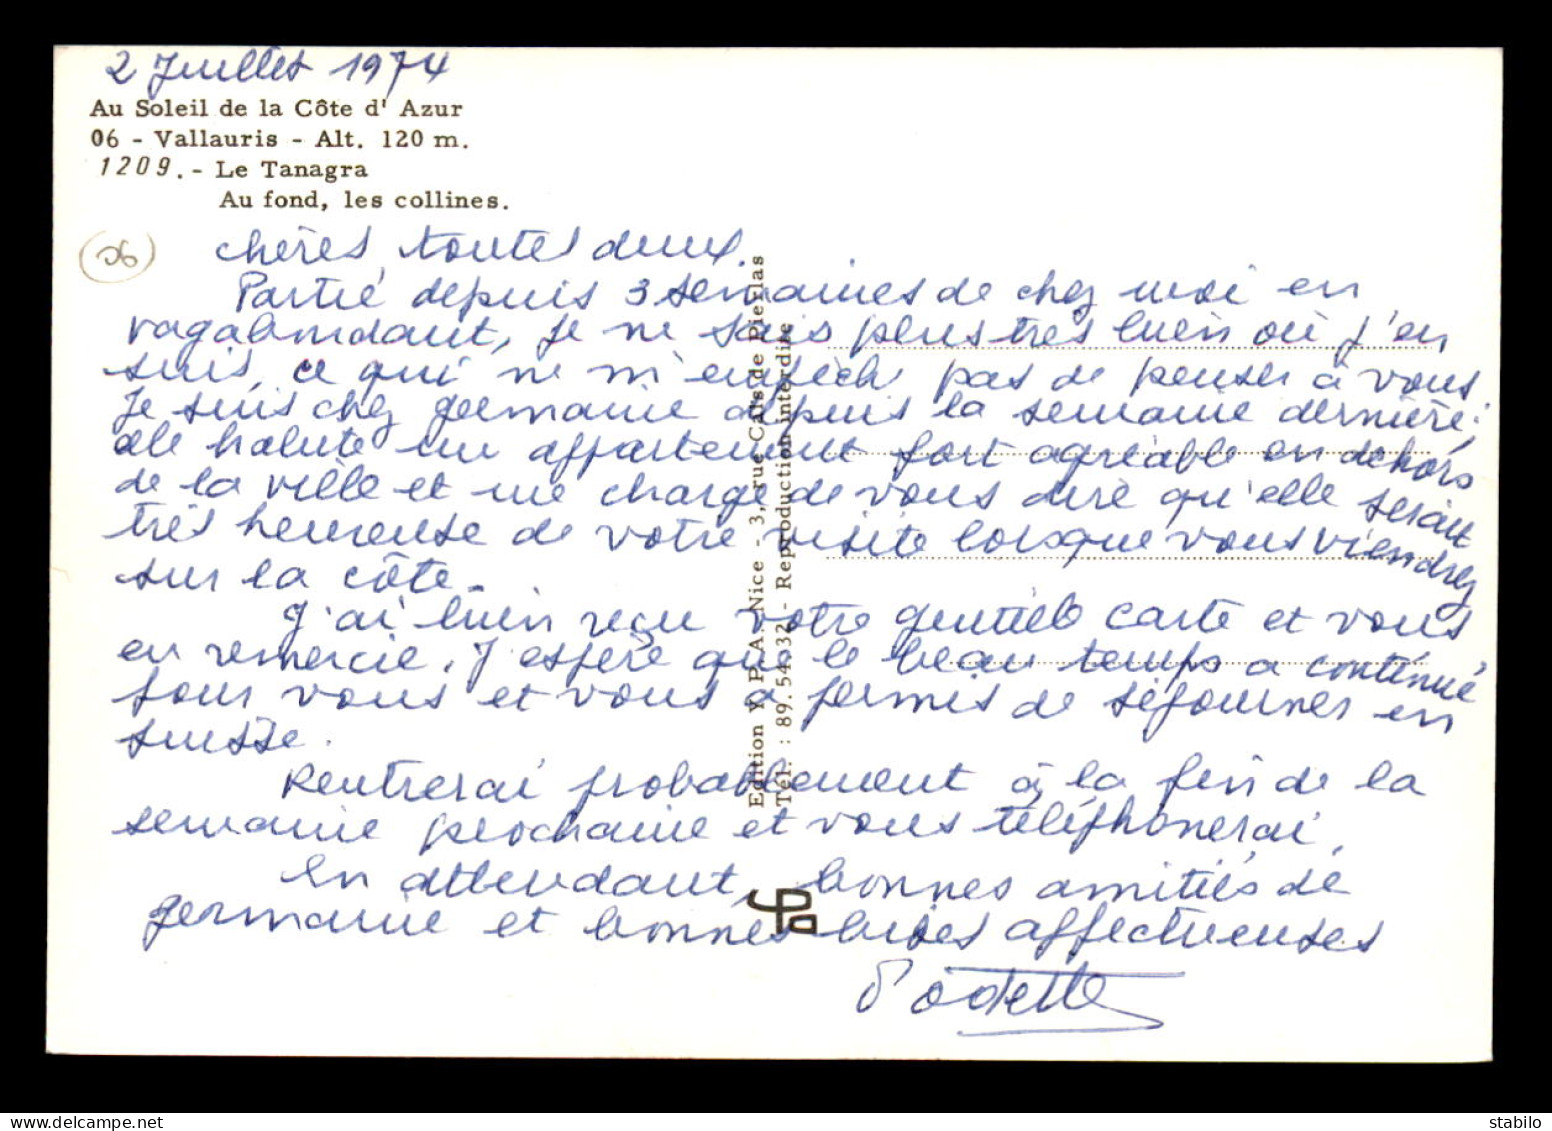 2 Juillet 1974
Au Soleil de la Côte d' Azur
06 - Vallauris - Alt. 120 m.
1209. - Le Tanagra
Au fond, les collines.
06
chères toutes deux.
Partie depuis 3 semaines de chez moi en
vagabondant, je ne sais plus très bien où j'en
suis, ce qui ne m'empêche pas de penser à vous.
Je suis chez germaine depuis la semaine dernière,
elle habite un appartement fort agréable en dehors
de la ville et me charge de vous dire qu'elle serait
très heureuse de votre visite lorsque vous viendrez
sur la côte.
J'ai bien reçu votre gentille carte et vous
en remercie. J'espère que le beau temps a continué
pour vous et vous a permis de séjourner en
suisse.
Rentrerai probablement à la fin de la
semaine prochaine et vous téléphonerai.
En attendant, bonnes amitiés de
germaine et bonnes bises affectueuses
d'odette
Edition Y. P. A. Nice - 3, rue Cals de Pierlas
Tél. : 89.54.32 - Reproduction interdite
YPa
delcampe.net
seastylo